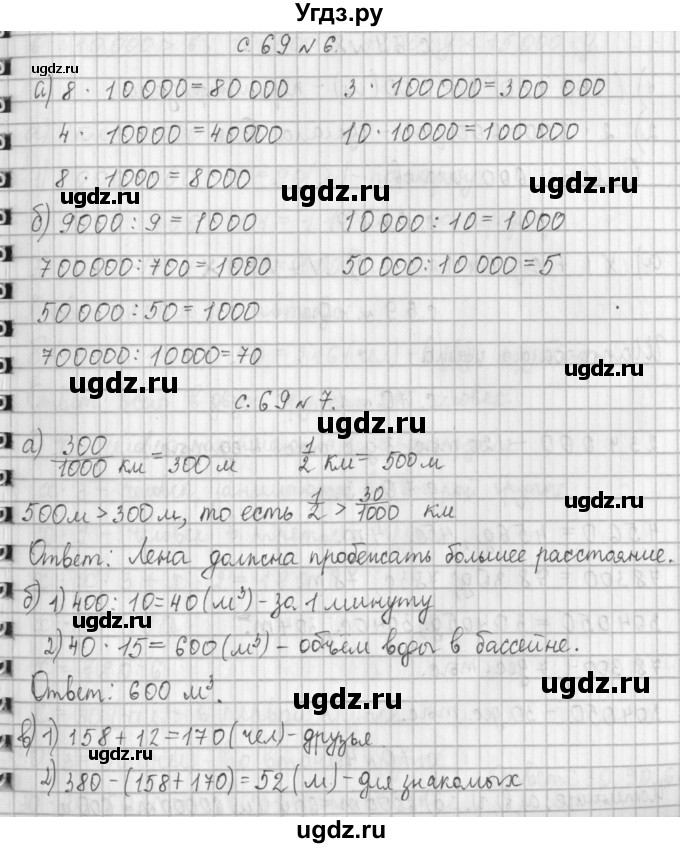 Угдз.ру
с. 69 №6.
ugdz.ru
ugdz.ru
а) 8 · 10 000 = 80 000 3 · 100000 = 300 000
4 · 10000 = 40000 10 · 10000 = 100 000
8 · 1000 = 8000
ugdz.ru ugdz.ru ugdz.ru
б) 9000 : 9 = 1000 10000 : 10 = 1000
700000 : 700 = 1000 50000 : 10 000 = 5
50000 : 50 = 1000
700000 : 10000 = 70
ugdz.ru ugdz.ru
с. 69 №7.
ugdz.ru
а) 300/1000 км = 300 м 1/2 км = 500 м
500м > 300м, то есть 1/2 > 30/1000 км
ugdz.ru
Ответ: Лена должна пробежать большее расстояние.
ugdz.ru
б) 1) 400 : 10 = 40 (м³) - за 1 минуту
ugdz.ru
2) 40 · 15 = 600 (м³) - объем воды в бассейне.
Ответ: 600 м³.
ugdz.ru ugdz.ru
в) 1) 158 + 12 = 170 (чел) - друзья
ugdz.ru
2) 380 - (158 + 170) = 52 (м) - для знакомых
ugdz.ru ugdz.ru
ugdz.ru